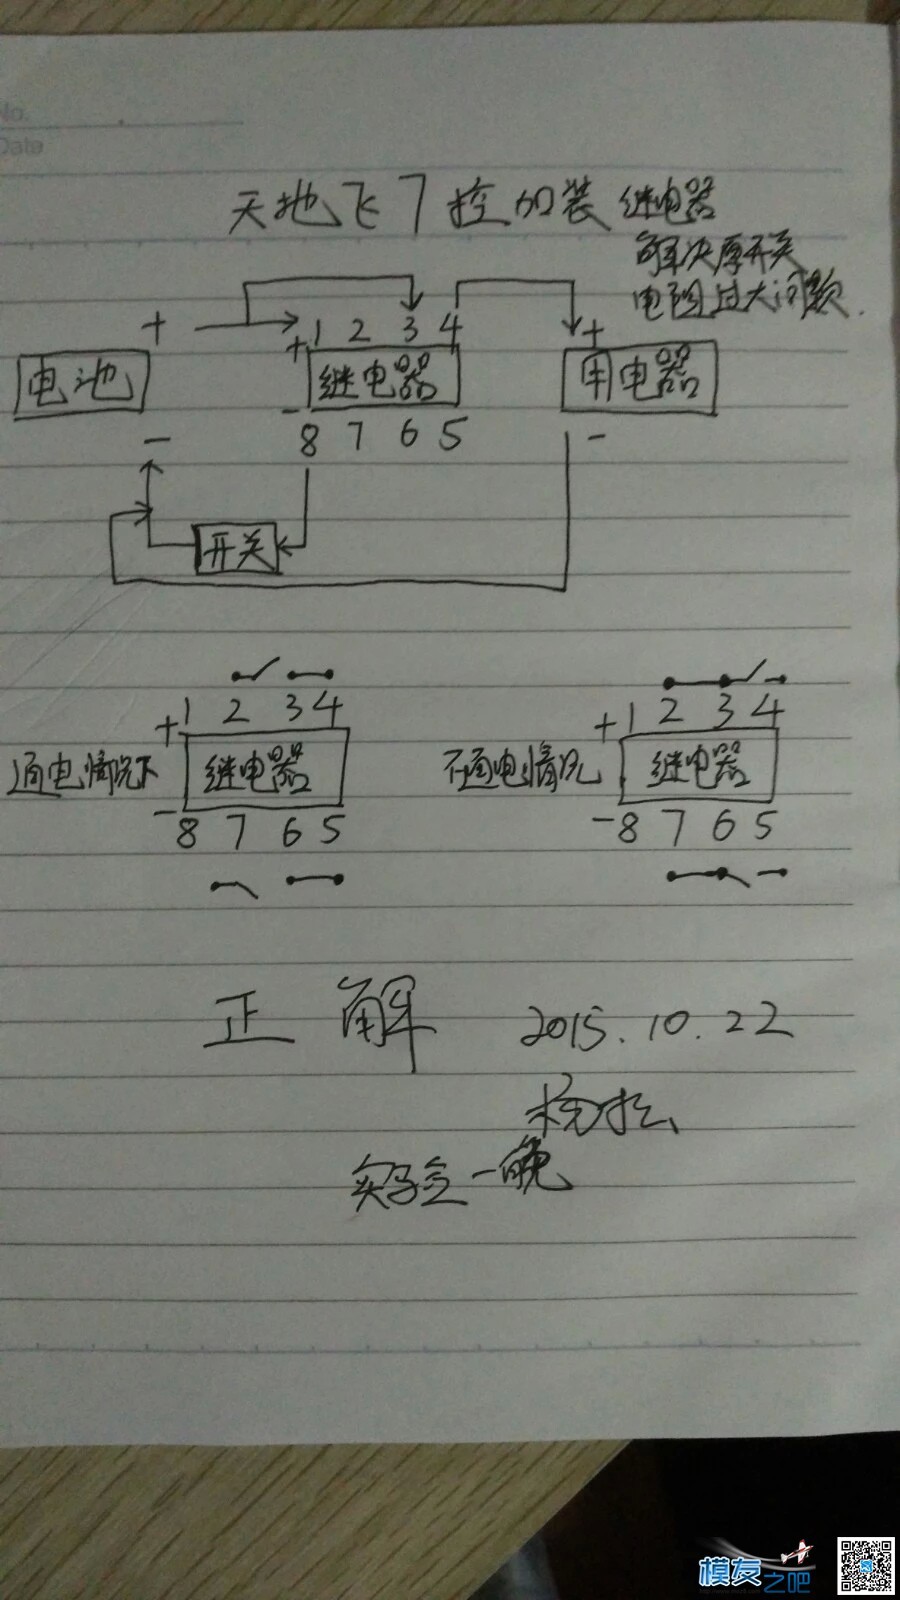 No.
Date
天地飞7控加装继电器
解决厚开关
电阻过大问题.
+ + 1 2 3 4 +
电池 继电器 用电器
- - 8 7 6 5 -
开关
+ 1 2 3 4 + 1 2 3 4
通电情况下 继电器 不通电情况 继电器
- 8 7 6 5 - 8 7 6 5
正解 2015.10.22
实验一晚
模友之吧